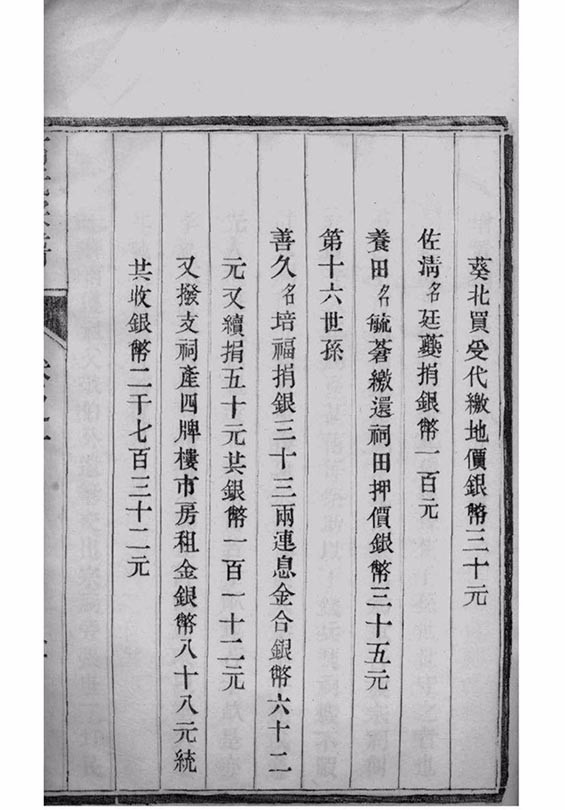 葵北買受代繳地價銀幣三十元
佐淸名廷藝捐銀幣一百元
養田名毓蓍繳還祠田押價銀幣三十五元
第十六世孫
善久名培福捐銀三十三兩連息金合銀幣六十二
元又續捐五十元共銀幣一百一十二元
又撥支祠產四牌樓市房租金銀幣八十八元統
共收銀幣二千七百三十二元